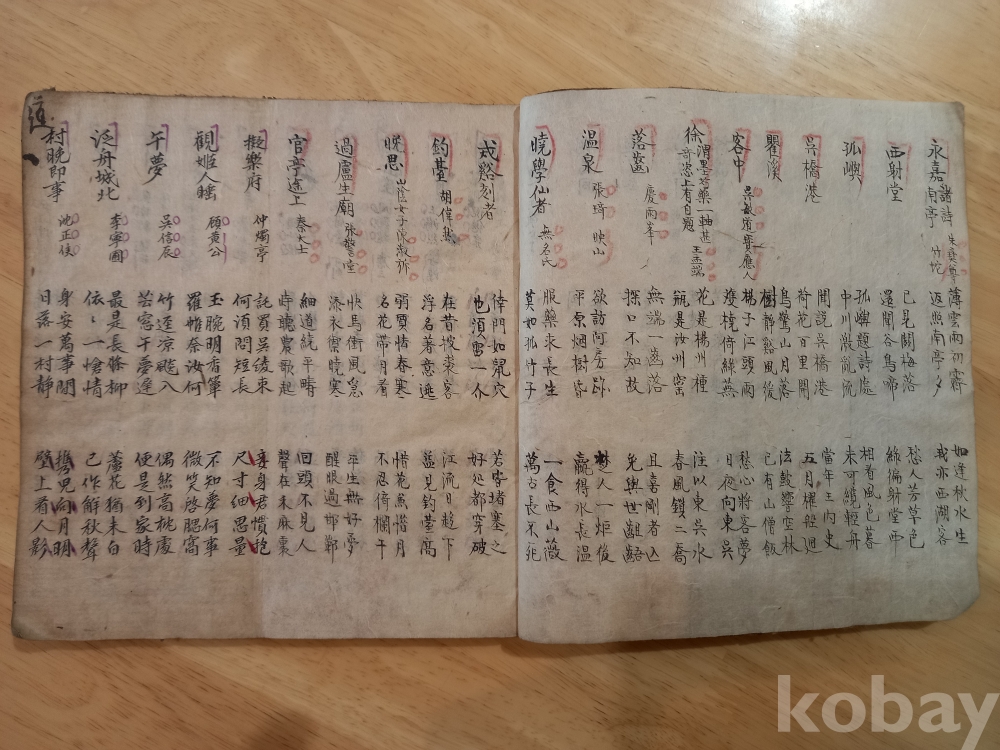 永嘉諸詩 朱彝尊 竹垞
南亭
薄雲雨初霽 如逢秋水生
返照南亭夕 我亦西湖客
西射堂
已見梅落 愁人芳草色
還聞谷鳥啼 綠徧射堂西
孤嶼
孤嶼題詩處 相看風色暮
中川激亂流 未可纜輕舟
吳橋港
聞說吳橋港 當年王內史
荷花百里開 五月櫂船迴
瞿溪
鳥驚山月落 法鼓響空林
樹靜谿風緩 已有山僧飯
客中 吳 寶應人
楊子江頭雨 愁心將客夢
橈倚綠燕 日夜向東吳
徐渭墨芍藥一軸甚奇恣上有自題 王端
花是楊州種 注以東吳水
瓶是汝州窑 春風鎖二喬
落齒 慶雨峯
無端一齒落 且喜剛者亾
探口不知故 免與世齟齬
溫泉 張琦 映山
欲訪阿房跡 楚人一炬後
平原烟樹昏 贏得水長溫
曉學仙者 無名氏
服藥求長生 一食西山薇
莫如孤竹子 萬古長不死
戎谿刻者
倖門如鼠穴 若宰堵塞之
也須留一个 好処都穿破
釣臺 胡偉然
在昔披裘客 江流日趨下
浮名著意逃 益見釣臺高
晚思 山陰女子陳淑旂
弱質惜春寒 惜花無惜月
名花帶月看 不忍倚欄干
過盧生廟 張堂
快馬衝風急 平生無好夢
添衣禦曉寒 醒眼過邯鄲
官亭途上 秦大士
細道繞平疇 回頭不見人
時聽農歌起 聲在禾麻裏
擬樂府 仲燭亭
託買吳綾束 妾身君慣抱
何須問短長 尺寸細思量
觀姬人睡 顧黃公
玉腕明香簟 不知夢何事
羅帷奈汝何 微笑啟腮窩
午夢 吳信辰
竹逕涼颸入 偶然高枕處
窓午夢遲 便是到家時
泛舟城北 李寧圃
最是長條柳 蘆花猶未白
依〻一愴情 已作解秋聲
村晚即事 沈正侯
身安萬事閒 攜兒向月明
日落一村靜 壁上看人影
kobay